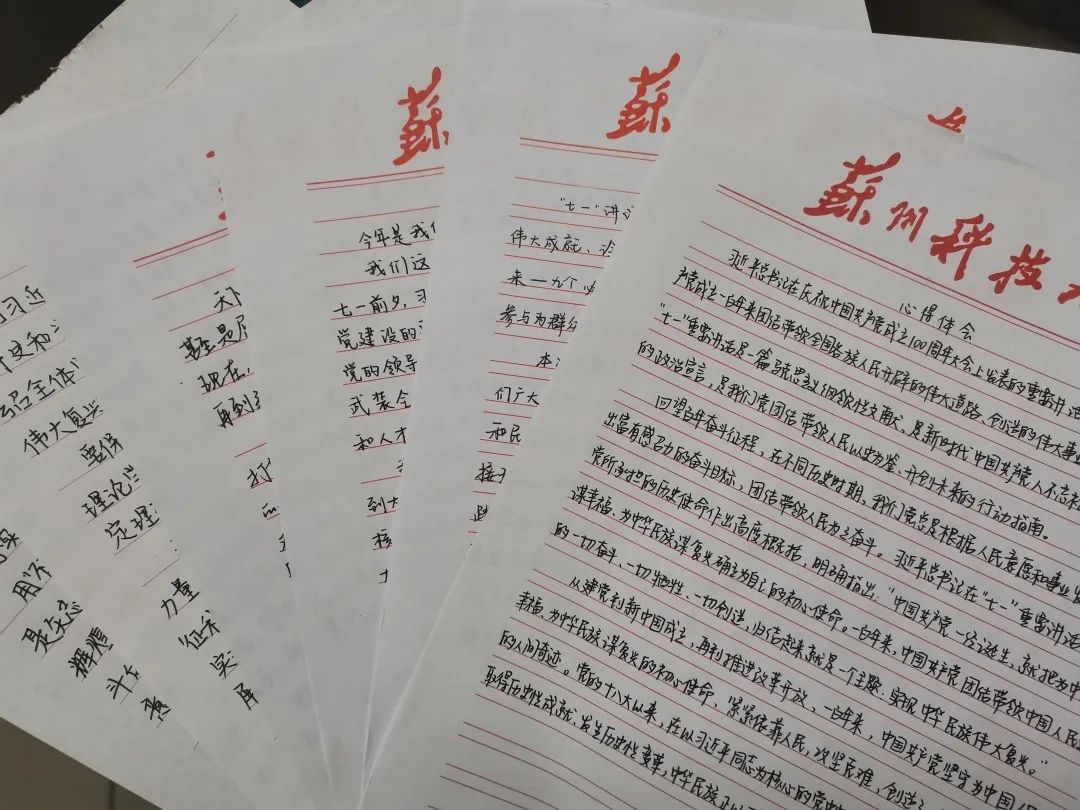 蘇州科技
心得体会
习近平总书记在庆祝中国共产党成立100周年大会上发表的重要讲话
产党成立一百年来团结带领全国各族人民开辟的伟大道路、创造的伟大事业
"七一"重要讲话是一篇马克思主义纲领性文献，是新时代中国共产党人不忘初
的政治宣言，是我们党团结带领人民以史为鉴、开创未来的行动指南。
回望百年奋斗征程，在不同历史时期，我们党总是根据人民意愿和事业发
出富有感召力的奋斗目标，团结带领人民为之奋斗。习近平总书记在"七一"重要讲话
党所承担的历史使命作出高度概括，明确指出："中国共产党一经诞生，就把为中
谋幸福、为中华民族谋复兴确立为自己的初心使命。一百年来，中国共产党团结带领中国人民
的一切奋斗、一切牺牲、一切创造，归结起来就是一个主题：实现中华民族伟大复兴。"
从建党到新中国成立，再到推进改革开放，一百年来，中国共产党坚守为中国
幸福、为中华民族谋复兴的初心使命，紧紧依靠人民，攻坚克难，创造
的人间奇迹。党的十八大以来，在以习近平同志为核心的党
取得历史性成就、发生历史性变革，中华民族正以
蘇
"七一"讲
伟大成就、
来一九个
参与为群
本
们广大
和民
接
蘇
今年是我
我们这
七一前夕，
党建设的
党的领导
武装全
和人才
到
核
现在，
再到
打
习近
史和
绍全体
伟大复兴
要保
理论
定理
用
是
辉煌
斗
力量
征
实
屏